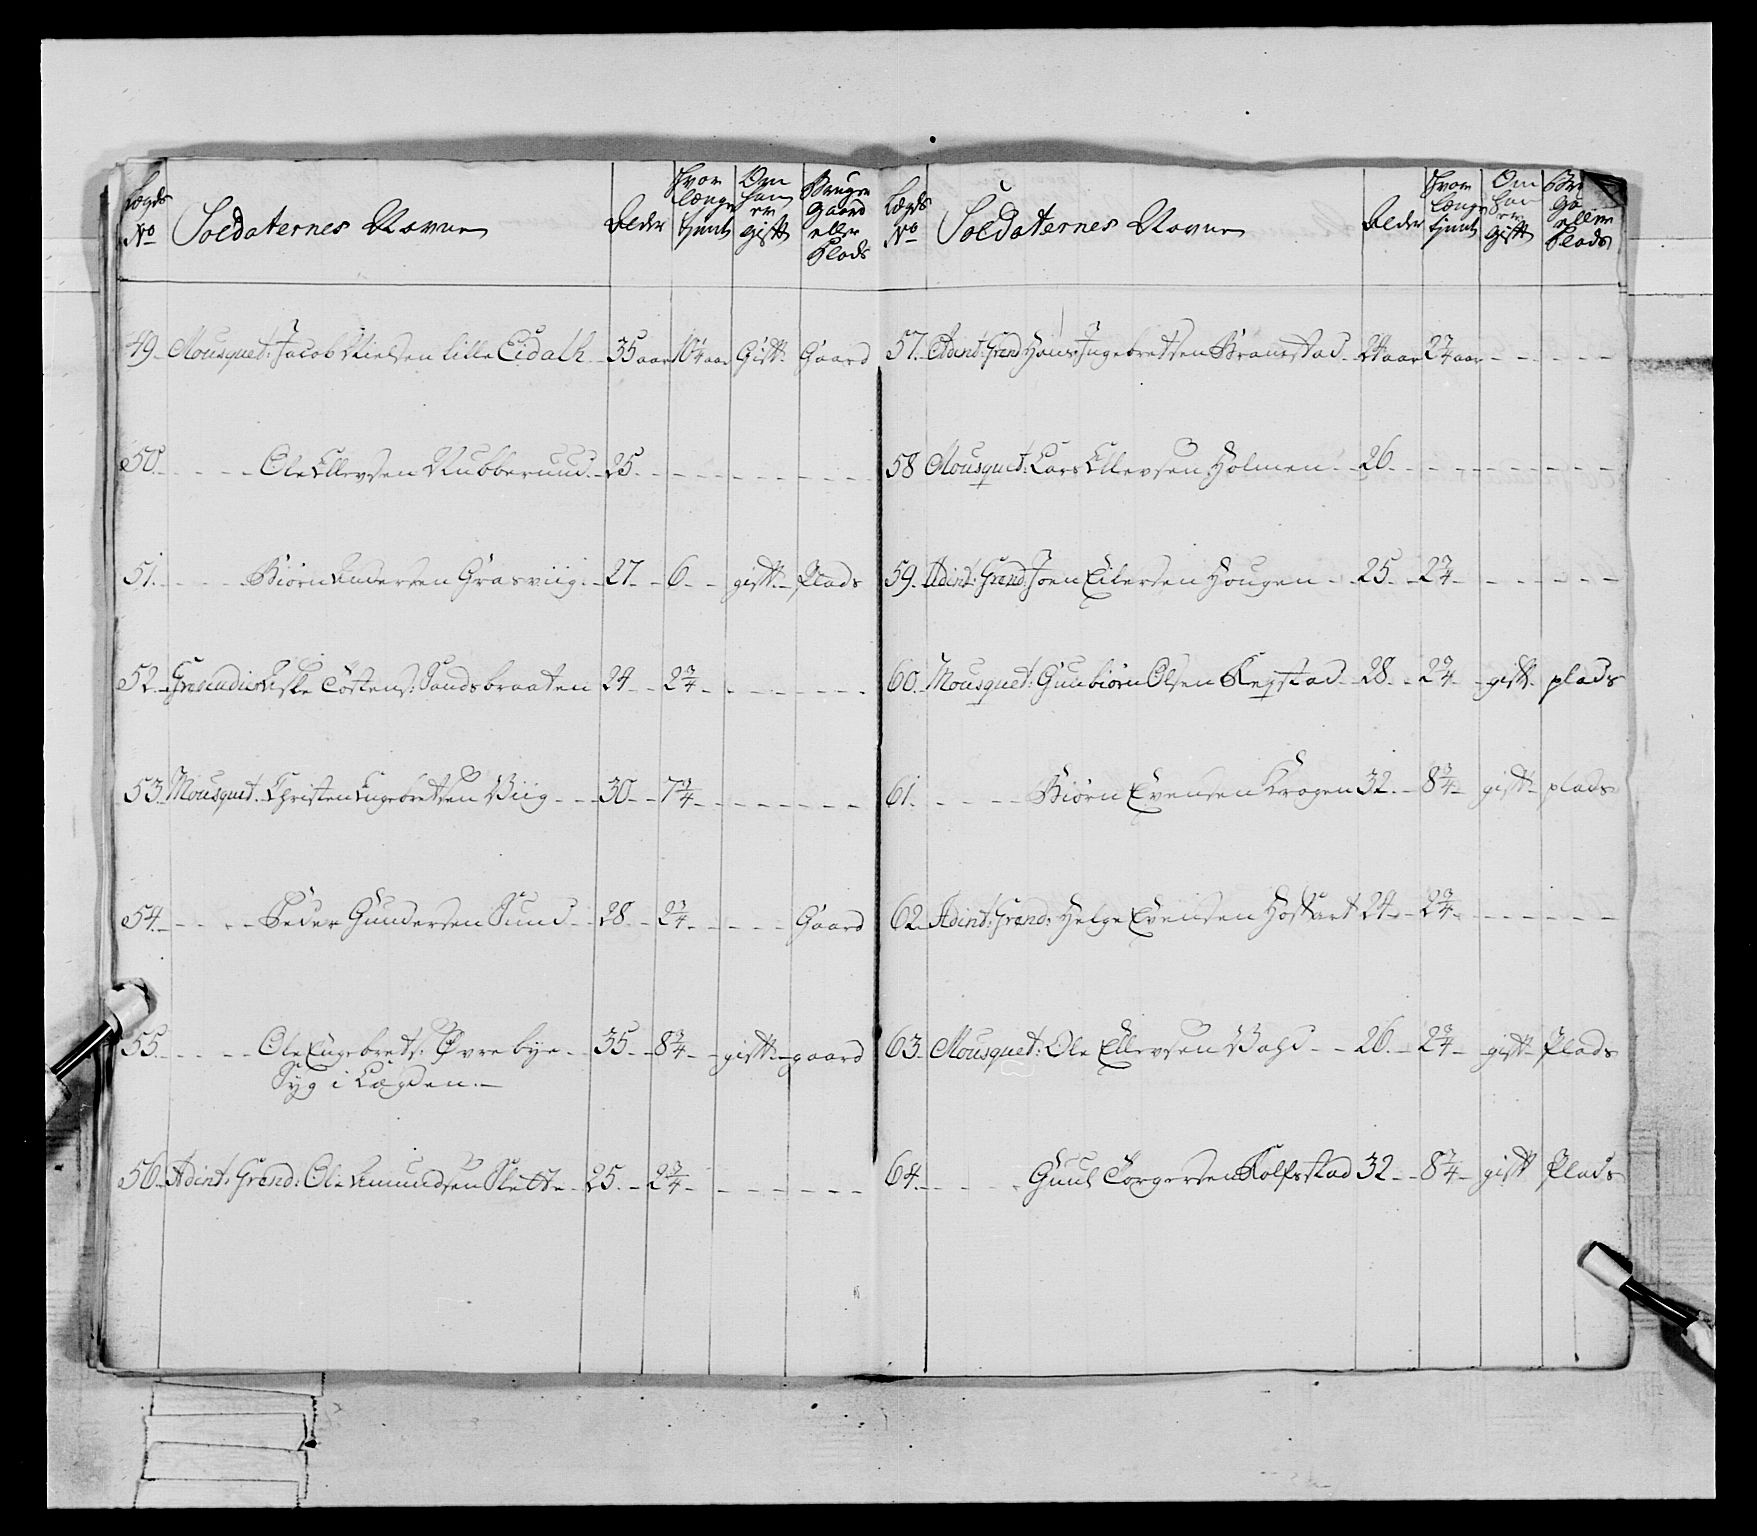 Lægds No | Soldaternes Navne | Alder | Hvor længe tjent | Om han er gift | Bruger Gaard eller Plads
49. Mousquet: Jacob Nielsen lille Eidalh. 35 aar 10 1/4 aar Gift Gaard
50. - - - Ole Ellevsen Rubberuud. 25. - - - -
51. - - - Biørn Andersen Græsviig. 27. 6. gift Plads
52. Grenadier Aslle Tostens: Sandsbraaten 24 2 3/4 - - -
53. Mousquet. Christen Engebretsen Viig 30 7 3/4 - - -
54. - - - Peder Gundersen Sund 28. 2 3/4 - - - Gaard
55. - - - Ole Engebrets: Øvre bye 35 8 3/4 gift gaard
Syg i Lægden.
56. Adint: Grend: Ole Amundsen Slette 25. 2 3/4 - - -
Lægds No | Soldaternes Navne | Alder | Hvor længe tjent | Om han er gift | eller Plads
57. Adint: Grend: Hans Ingebretsen 24 aar 2 3/4 aar - - -
58 Mousquet: Lars Ellevsen Holmen 26. - - - -
59. Adint: Grend: Joen Eilersen Hougen 25. 2 3/4 - - -
60. Mousquet: Gunbiørn Olsen 28. 2 3/4 gift plads
61. - - - Biørn Evensen Kragen 32. 8 3/4 gift plads
62. Adint: Grend: Helge Evensen 24. 2 3/4 - - -
63. Mousquet: Ole Ellevsen 26. 2 3/4 gift Plads
64. - - - Guul Torgersen Rolfsstad 32 8 3/4 gift Plads